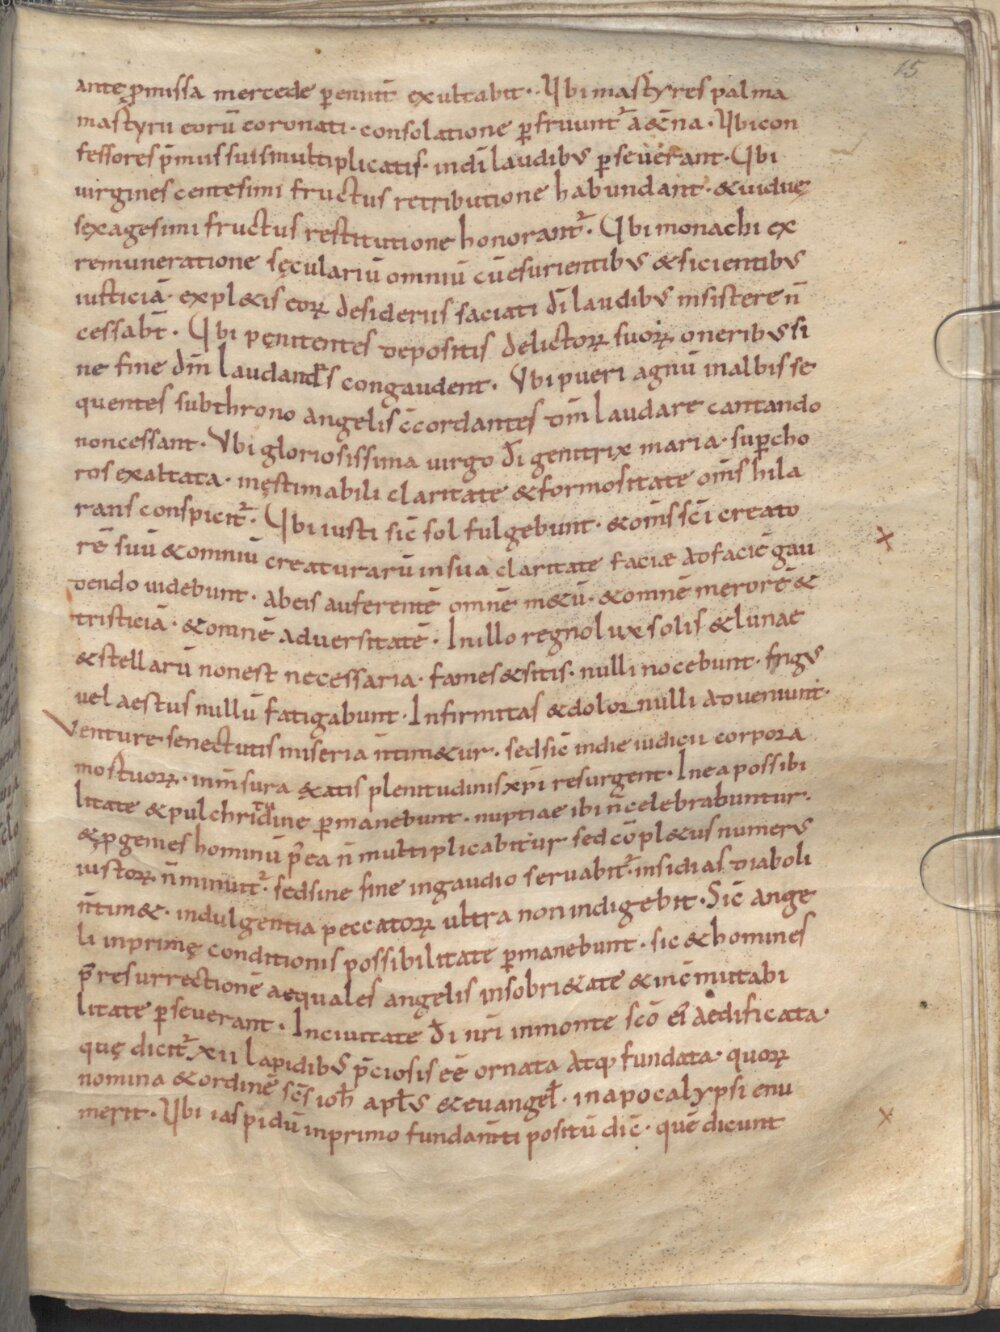 15
ante p̱missa mercede p̱ennit̄ exultabit· Ubi martyres palma
martyrii eorū coronati· consolatione p̱fruunt᷑ aet̄na· Ubi con
fessores p̄miis suis multiplicatis· in dī laudibus p̱severant· Ubi
virgines centesimi fructus retributione habundant· & viduę
sexagesimi fructus restitutione honorant᷑· Ubi monachi ex
remuneratione sęculariū omniū cū esurientibus & sicientibus
iusticiā· expletis eoꝝ desideriis saciati dī laudibus insistere n̄
cessabt̄· Ubi pęnitentes depositis delictoꝝ suoꝝ oneribus si
ne fine dn̄m laudand congaudent· Ubi pueri agnū in albis se
quentes sub throno angelis c̄cordantes dn̄m laudare cantando
non cessant· Ubi gloriosissima virgo dī genitrix maria· sup̱ cho
ros exaltata· inęstimabili claritate & formositate om̄s hila
rans conspicit᷑· Ubi iusti sic̄ sol fulgebunt· & om̄s sc̄i creato
rē suū & omniū creaturarū in sua claritate faciae ad faciē gau
dendo videbunt· ab eis auferentē omnē met̄ū· & omnē merorē &
tristiciā· & omnē adversitatē· In illo regno lux solis & lunae
& stellarū non est necessaria· fames & sitis· nulli nocebunt· frigus
vel aestus nullū fatigabunt· Infirmitas & dolor nulli adveniunt·
Venture senectutis miseria n̄ tim&ur· sed sic̄ in die iudicii corpora
mortuoꝝ· in m̄sura &atis plenitudinis xp̄i resurgent· In ea possibi
litate & pulchritudine p̱manebunt· nuptiae ibi n̄ celebrabuntur·
& p̱genies hominū p̄ea n̄ multiplicabitur sed cōpl&us numerus
iustoꝝ n̄ minuit᷑· sed sine fine in gaudio servabit᷑· insidias diaboli
n̄ tim&· indulgentia peccatoꝝ ultra non indigebit· Sic̄ ange
li in primę conditionis possibilitate p̱manebunt· sic & homines
p̄ resurrectionē aequales angelis in sobri&ate & in īmutabi
litate p̱severant· In civitate dī nr̄i in monte sc̄o ei᷑ aedificata·
quę dicit᷑ xii lapidibus p̄ciosis ēē ornata atq; fundata· quoꝝ
nomina & ordinē sc̄s ioh̄ apl̄s & evangel̄· in apocalypsi enu
merit· Ubi iaspidū in primo fundam̄ti positū dic̄· quē dicunt